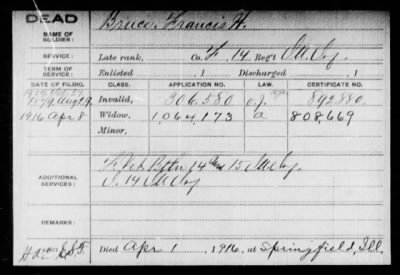 DEAD
NAME OF SOLDIER: Bruce, Francis H.
SERVICE: Late rank, Co. F, 14 Reg't Ill Inf
TERM OF SERVICE: Enlisted , 1 Discharged , 1
DATE OF FILING. CLASS. APPLICATION NO. LAW. CERTIFICATE NO.
1879 Aug 29 Invalid, 306.580 892.880
1916 Apr 8 Widow, 1,064,173 a 808,669
Minor,
ADDITIONAL SERVICES: 14 15 Ill Inf
14 Ill Inf
REMARKS:
Died Apr 1, 1916, at Springfield, Ill.